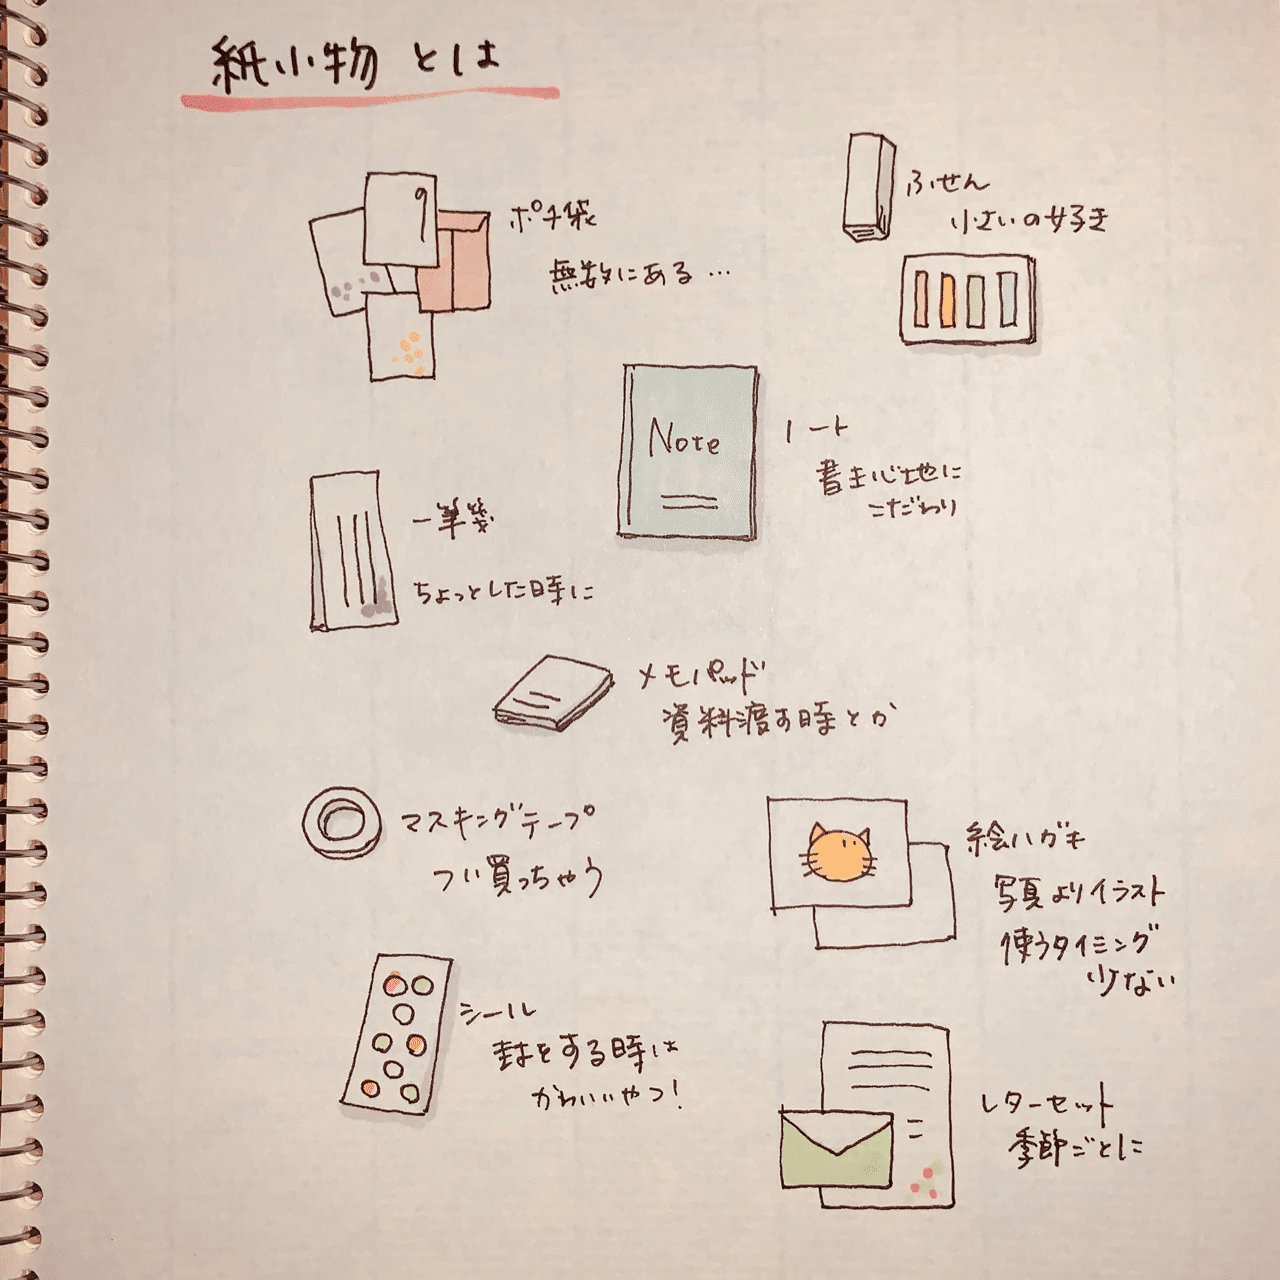 紙小物 とは
ポチ袋
無数にある…
ふせん
小さいの好き
Note
ノート
書き心地に
こだわり
一筆箋
ちょっとした時に
メモパッド
資料渡す時とか
マスキングテープ
つい買っちゃう
絵ハガキ
写真よりイラスト
使うタイミング
少ない
シール
封をする時は
かわいいやつ!
レターセット
季節ごとに